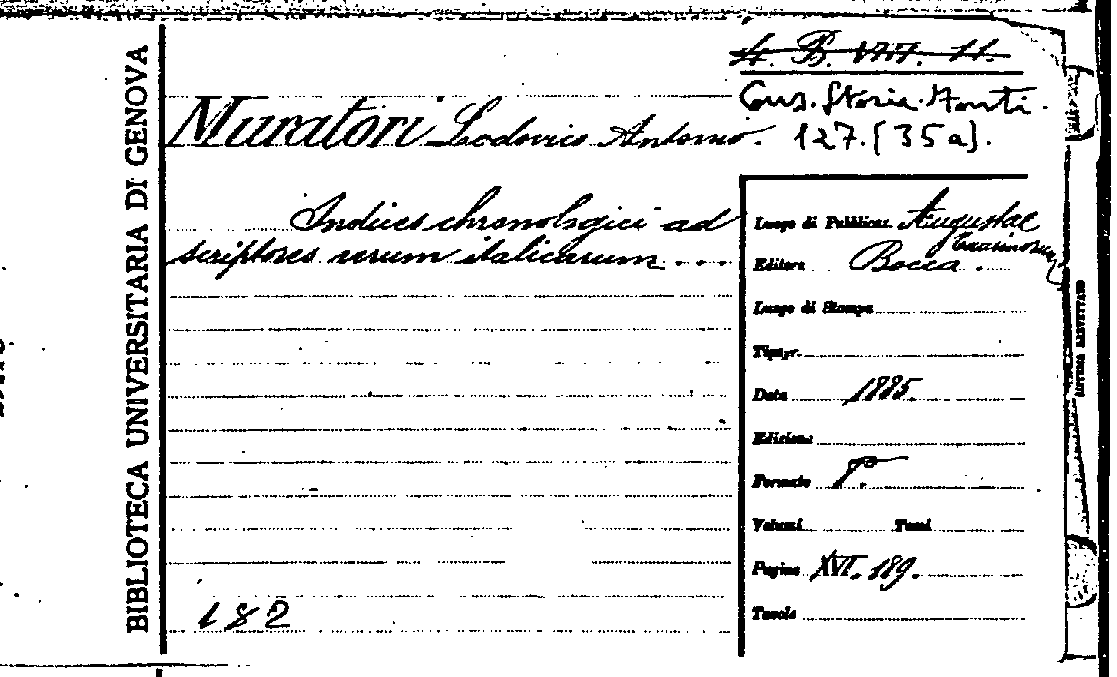 BIBLIOTECA UNIVERSITARIA DI GENOVA
4. B. VIII. 11.
Cons. Storia. Monti.
127. [35a].
Muratori Lodovico Antonio.
Indices chronologici ad
scriptores rerum italicarum....
Luogo di Pubblicaz. Augustae
Taurinorum
Editore Bocca.
Luogo di Stampa
Tipogr.
Data 1885.
Edizione
Formato 8°
Volumi Tomi
Pagine XVI. 189.
Tavole
182